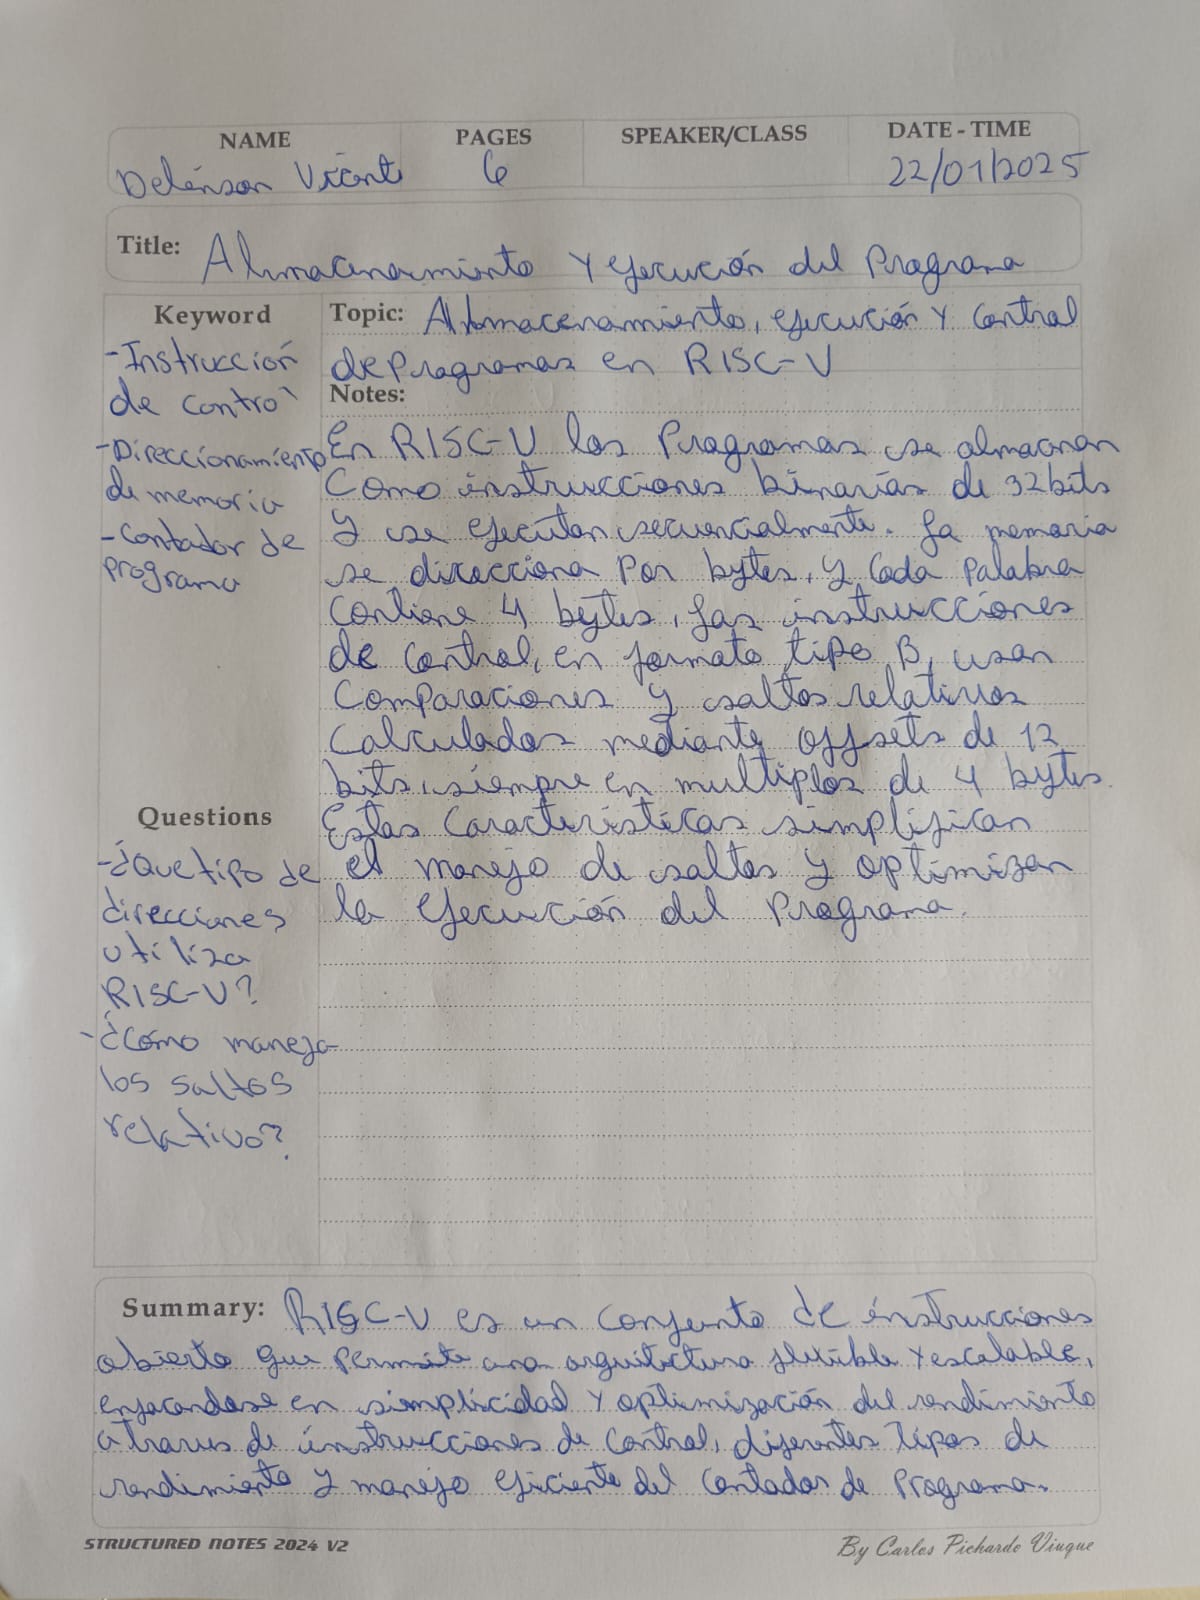 NAME PAGES SPEAKER/CLASS DATE - TIME
Delenson Vicente 6 22/01/2025
Title: Almacenamiento y ejecución del Programa
Keyword
- Instrucción
de control
- Direccionamiento
de memoria
- Contador de
programa
Topic: Almacenamiento, ejecución y Control
de Programas en RISC-V
Notes:
En RISC-V los Programas se almacnan
Como instrucciones binarias de 32 bits
y se ejecutan secuencialmente. La memoria
se direcciona Por bytes, y Cada Palabra
Contiene 4 bytes, las instrucciones
de control, en formato tipo B, usan
Comparaciones y saltos relativos
Calculados mediante offsets de 12
bits, siempre en multiplos de 4 bytes.
Estas Caracteristicas simplifican
el manejo de saltos y optimizan
la ejecución del Programa.
Questions
- ¿Que tipo de
direcciones
utiliza
RISC-V?
- ¿Cómo maneja
los saltos
relativo?
Summary: RISC-V es un Conjunto de instrucciones
abierto que permite una arquitectura flexible y escalable,
enfocandose en simplicidad y optimización del rendimiento
a traves de instrucciones de Control, diferentes tipos de
rendimiento y manejo eficiente del Contador de Programa.
STRUCTURED NOTES 2024 V2 By Carlos Pichardo Viuque